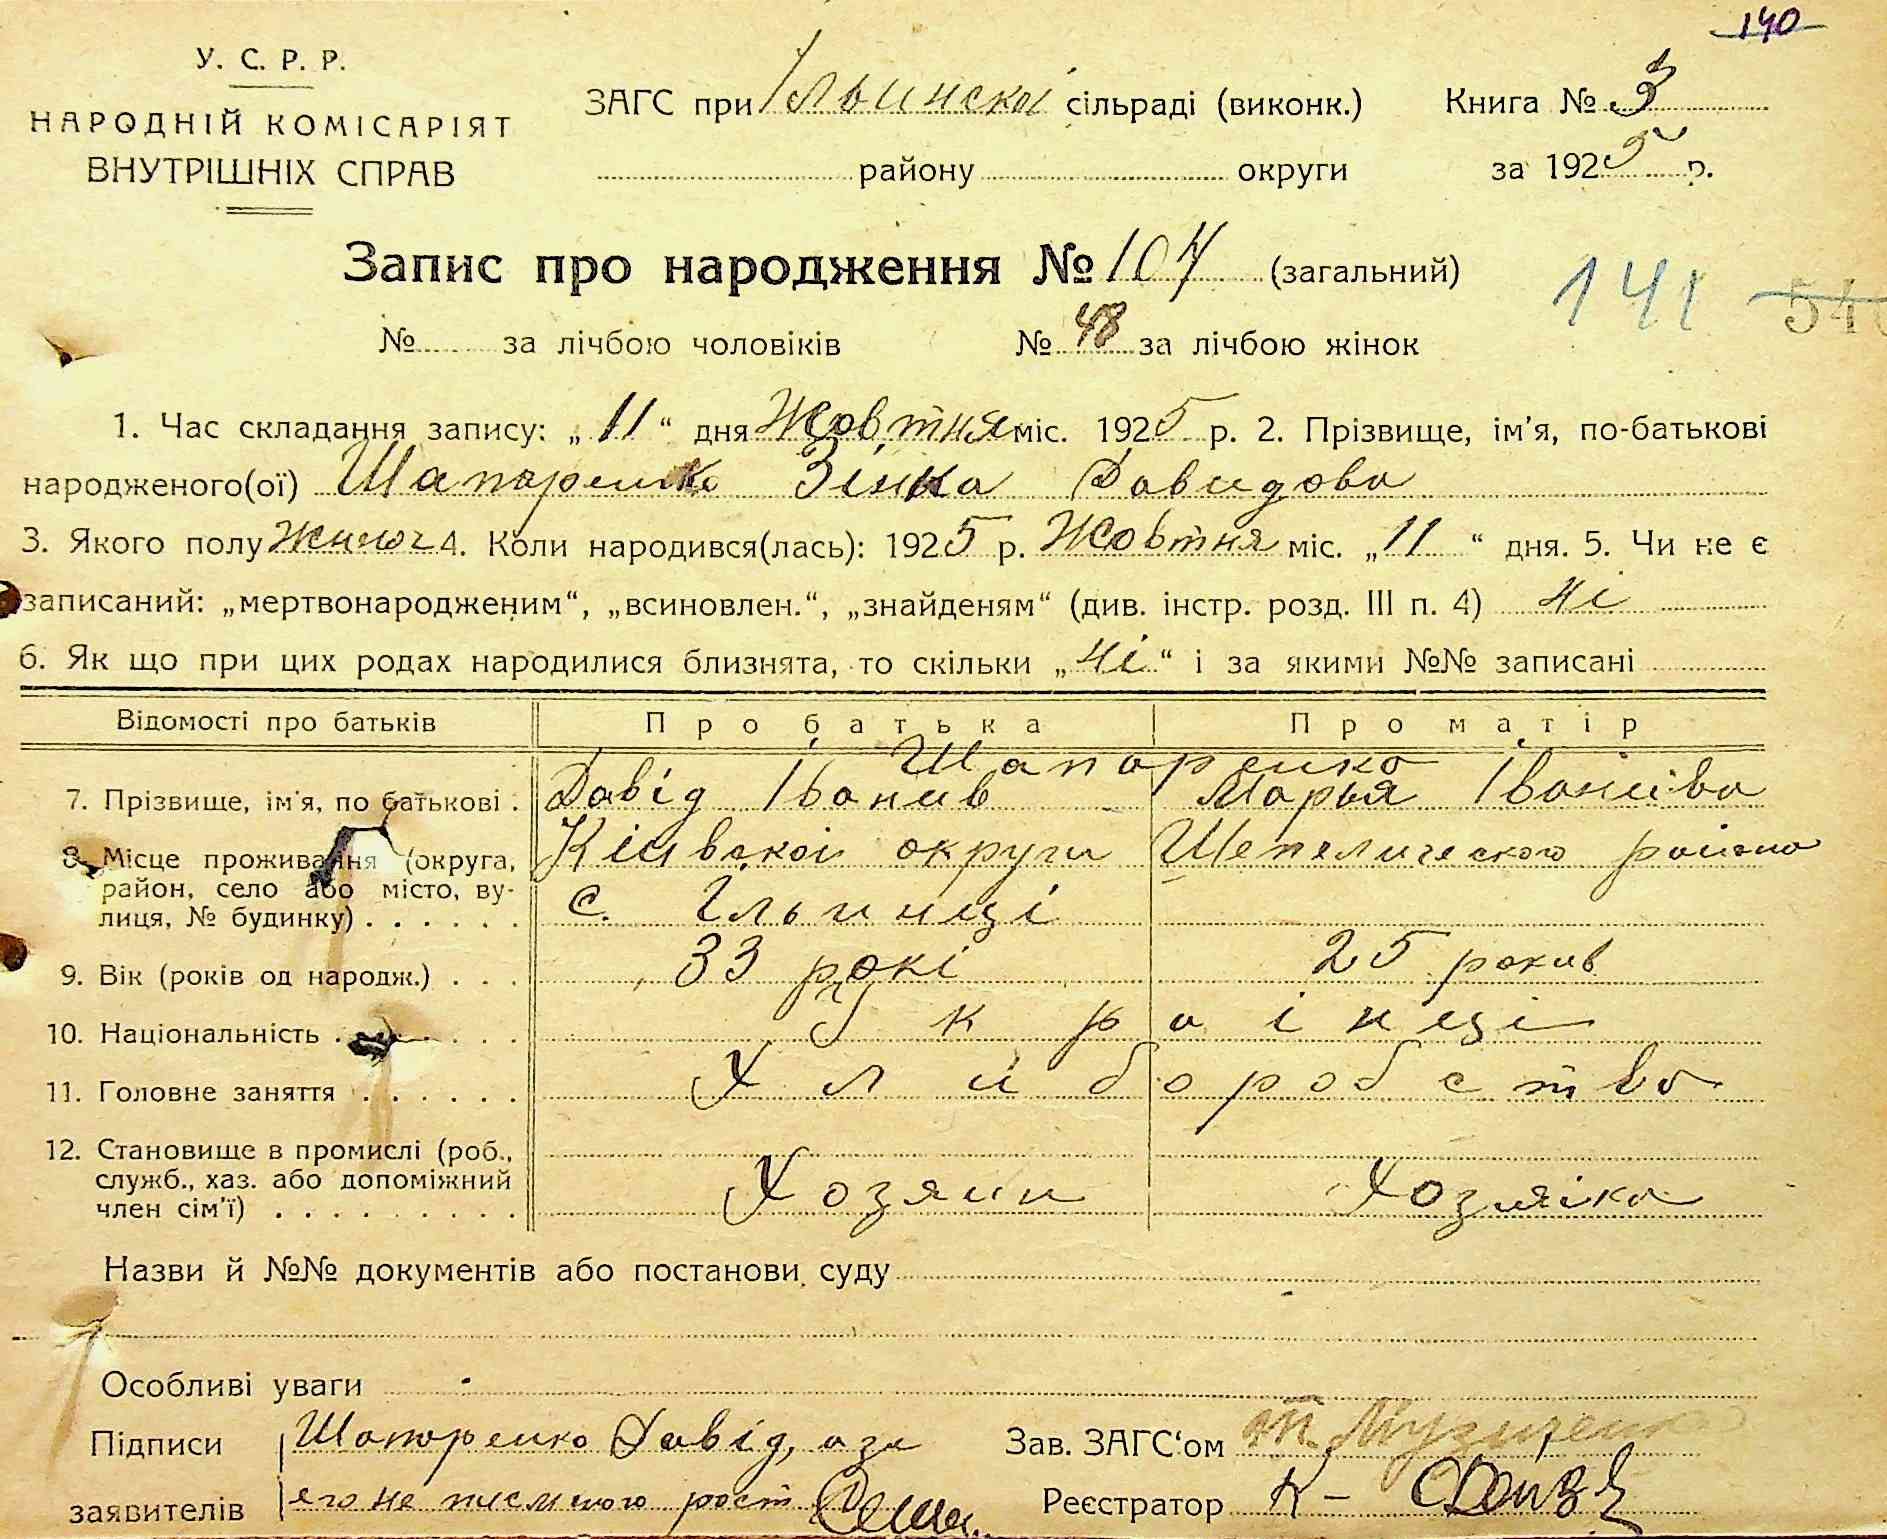 140
У. С. Р. Р.
НАРОДНІЙ КОМІСАРІЯТ
ВНУТРІШНІХ СПРАВ
ЗАГС при Ільинскоі сільраді (виконк.) Книга № 3
району округи за 1925 р.
Запис про народження № 107 (загальний)
141 540
№ за лічбою чоловіків № 48 за лічбою жінок
1. Час складання запису: „11“ дня Жовтня міс. 1925 р. 2. Прізвище, ім'я, по-батькові
народженого(ої) Шапоренко Зінка Давидова
3. Якого полу 4. Коли народився(лась): 1925 р. Жовтня міс. „11“ дня. 5. Чи не є
записаний: „мертвонародженим“, „всиновлен.“, „знайденям“ (див. інстр. розд. III п. 4) ні
6. Як що при цих родах народилися близнята, то скільки „ні“ і за якими №№ записані
Відомості про батьків Про батька Про матір
Шапоренко
7. Прізвище, ім'я, по батькові . Давід Іванив Марья Іванівна
8. Місце проживання (округа, Кіивскоі округи Шепелического району
район, село або місто, ву- с. Ільинці
лиця, № будинку) . . . . . .
9. Вік (років од народж.) . . . 33 рокі 25 рокив
10. Національність . . . . . . Украінці
11. Головне заняття . . . . . . Хлиборобство
12. Становище в промислі (роб.,
служб., хаз. або допоміжний Хозяин Хозяіка
член сім'ї) . . . . . . . . .
Назви й №№ документів або постанови суду
Особливі уваги
Підписи Шапоренко Давід, а за Зав. ЗАГС'ом
заявителів его не писмоного рост Реєстратор К-